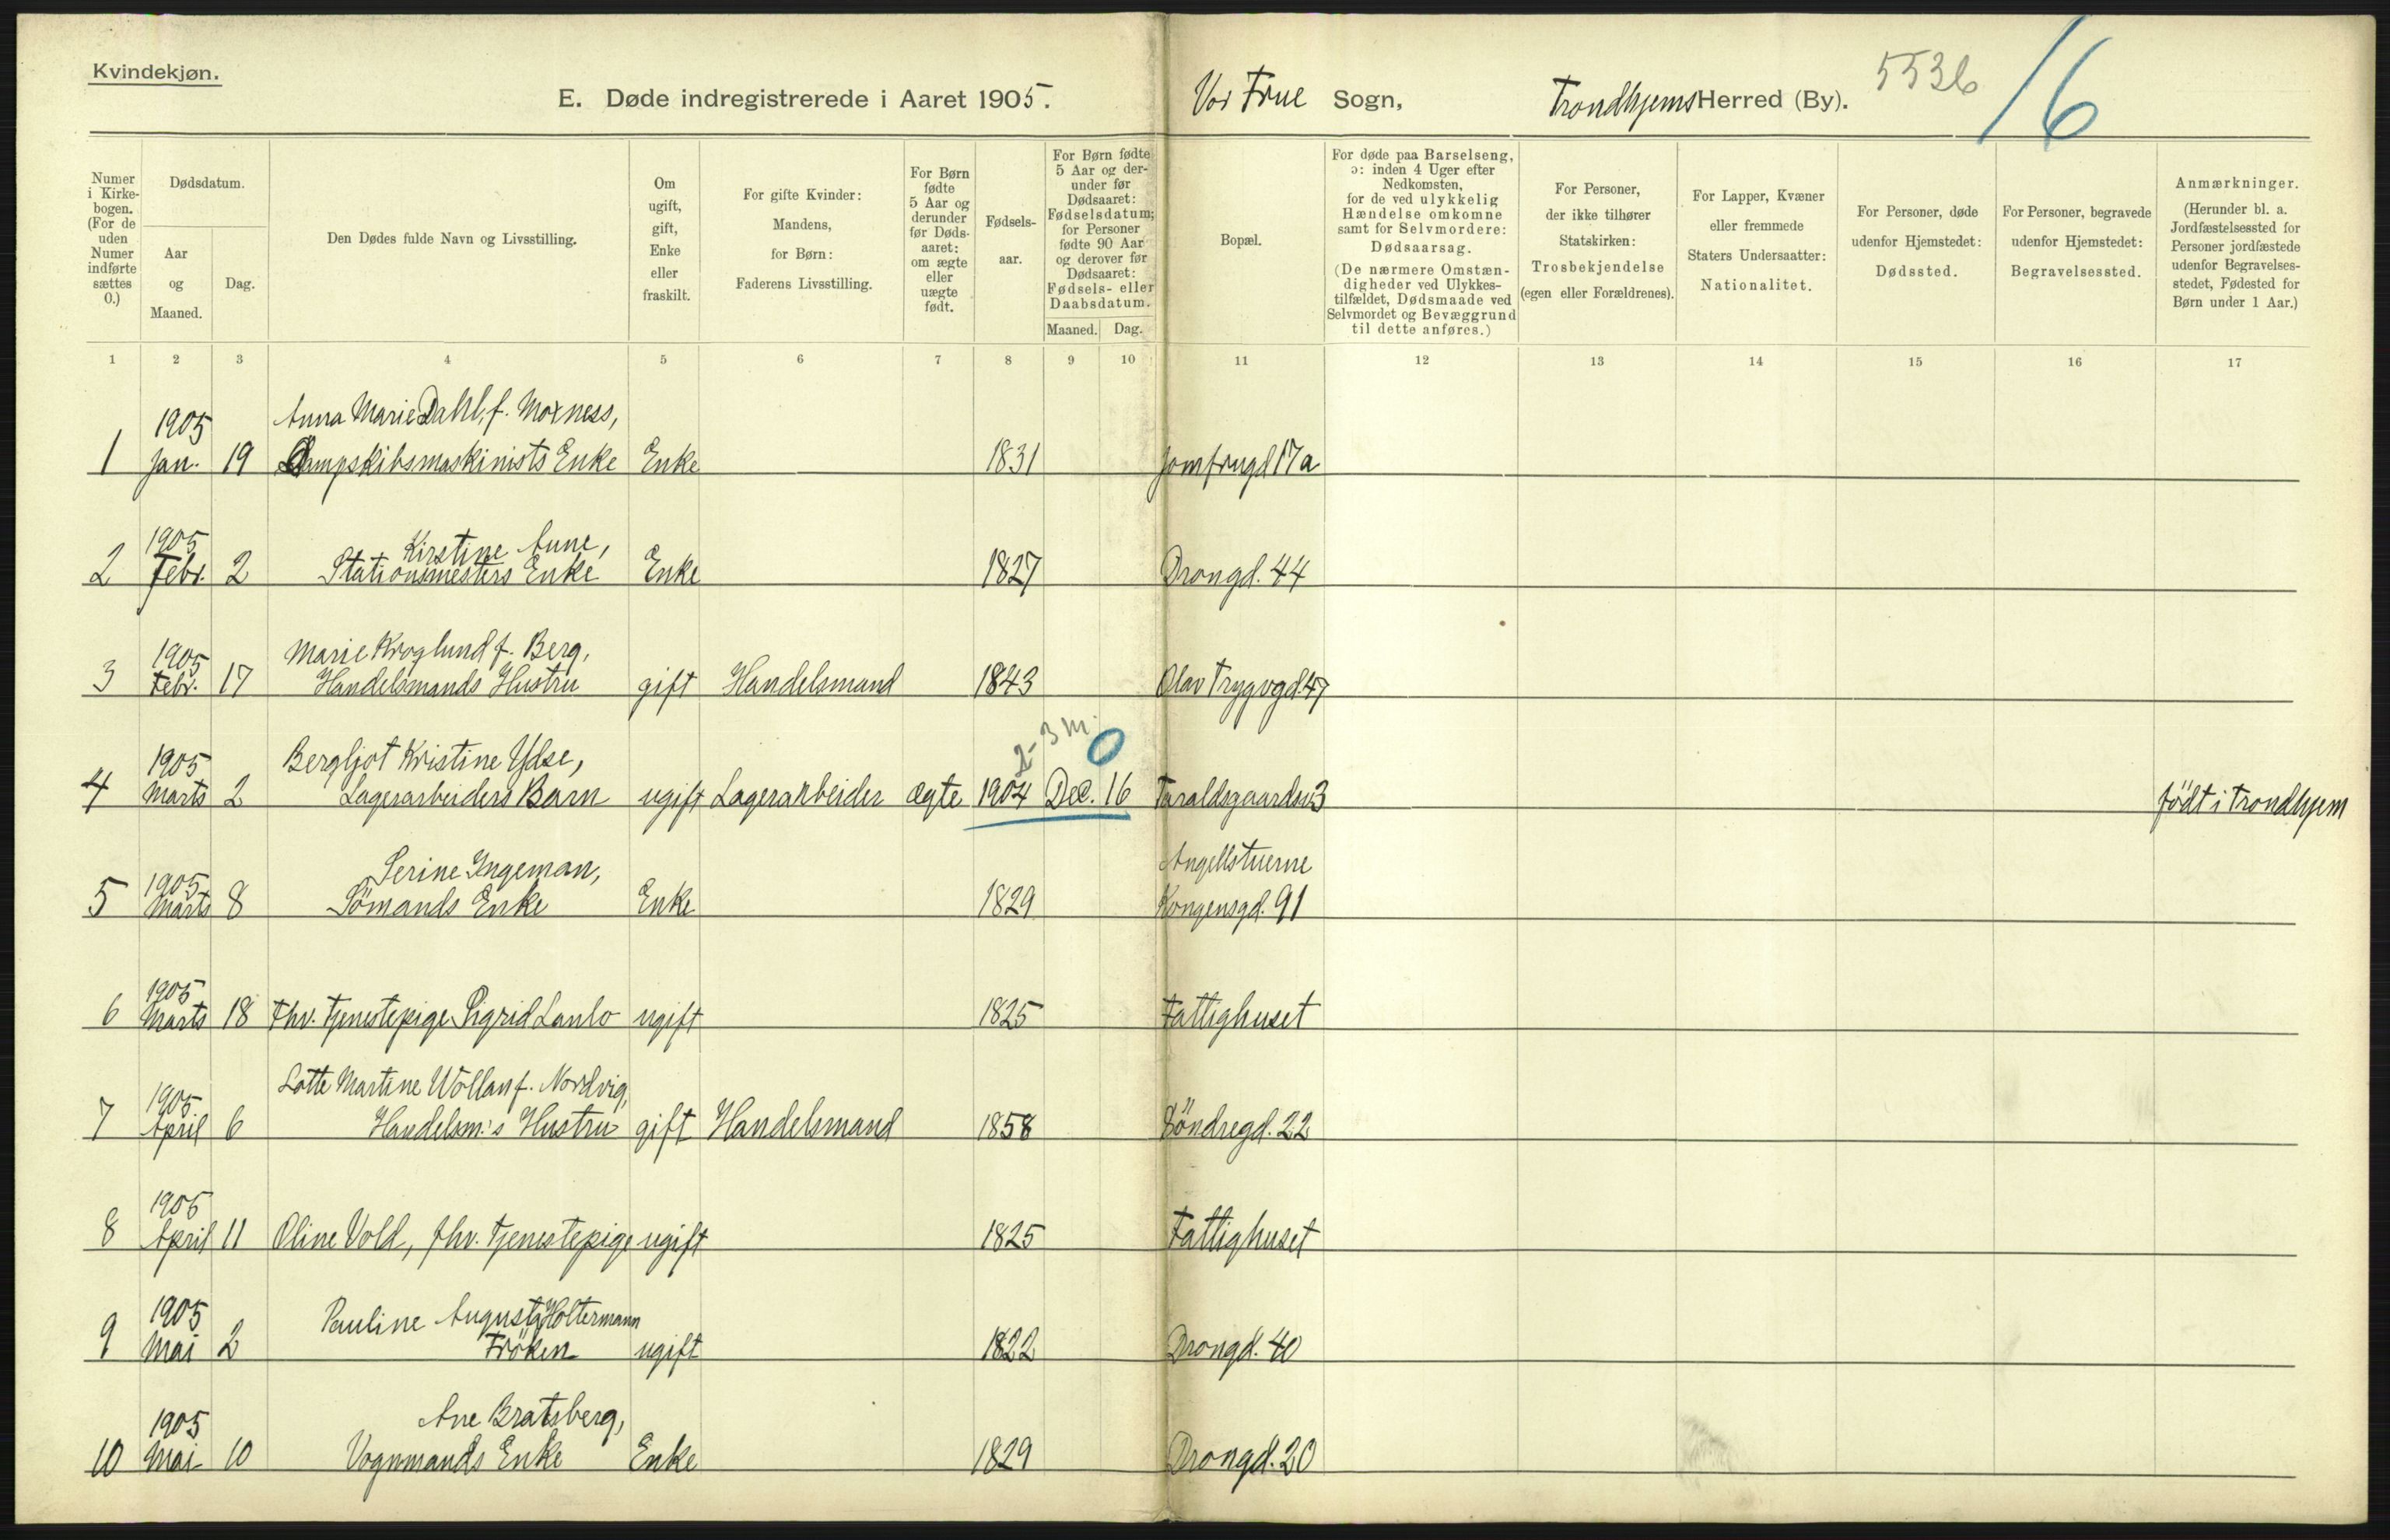 Kvindekjøn.
E. Døde indregistrerede i Aaret 1905.
Vor Frue Sogn, Trondhjems Herred (By).
5536
16
Numer i Kirkebogen. (For de uden Numer indførte sættes 0.)
Dødsdatum.
Aar og Maaned.
Dag.
Den Dødes fulde Navn og Livsstilling.
Om ugift, gift, Enke eller fraskilt.
For gifte Kvinder: Mandens, for Børn: Faderens Livsstilling.
For Børn fødte 5 Aar og derunder før Dødsaaret: om ægte eller uægte født.
Fødselsaar.
For Børn fødte 5 Aar og derunder før Dødsaaret: Fødselsdatum; for Personer fødte 90 Aar og derover før Dødsaaret: Fødsels- eller Daabsdatum.
Maaned. Dag.
Bopæl.
For døde paa Barselseng, ɔ: inden 4 Uger efter Nedkomsten, for de ved ulykkelig Hændelse omkomne samt for Selvmordere: Dødsaarsag.
(De nærmere Omstændigheder ved Ulykkestilfældet, Dødsmaade ved Selvmordet og Bevæggrund til dette anføres.)
For Personer, der ikke tilhører Statskirken: Trosbekjendelse (egen eller Forældrenes).
For Lapper, Kvæner eller fremmede Staters Undersaatter: Nationalitet.
For Personer, døde udenfor Hjemstedet: Dødssted.
For Personer, begravede udenfor Hjemstedet: Begravelsessted.
Anmærkninger. (Herunder bl. a. Jordfæstelsessted for Personer jordfæstede udenfor Begravelsesstedet, Fødested for Børn under 1 Aar.)
1 2 3 4 5 6 7 8 9 10 11 12 13 14 15 16 17
1905 Anna Marie Dahl, f. Moxness,
1 Jan. 19 Dampskibsmaskinists Enke Enke 1831 Jomfrugd 17a
1905 Kirstine Aune,
2 Febr. 2 Stationsmesters Enke Enke 1827 Drongd. 44
1905 Marie Kroglund f. Berg,
3 Febr. 17 Handelsmands Hustru gift Handelsmand 1843 Olav Trygvgd. 47
2-3 m. 0
1905 Bergljot Kristine Ydse,
4 Marts 2 Lagerarbeiders Barn ugift Lagerarbeider ægte 1904 Dec. 16 Taraldsgaardsv 3 født i Trondhjem
1905 Serine Ingeman, Angellstuerne
5 Marts 8 Sömands Enke Enke 1829 Kongensgd. 91
1905
6 Marts 18 Fhv. Tjenestepige Sigrid Lanlo ugift 1825 Fattighuset
1905 Lotte Martine Wollan f. Nordvig,
7 April 6 Handelsm.'s Hustru gift Handelsmand 1858 Söndregd. 22
1905
8 April 11 Oline Vold, fhv. Tjenestepige ugift 1825 Fattighuset
1905 Pauline Augusta Holtermann
9 Mai 2 Fröken ugift 1822 Drongd. 40
1905 Ane Bratsberg,
10 Mai 10 Vognmands Enke Enke 1829 Drongd. 20